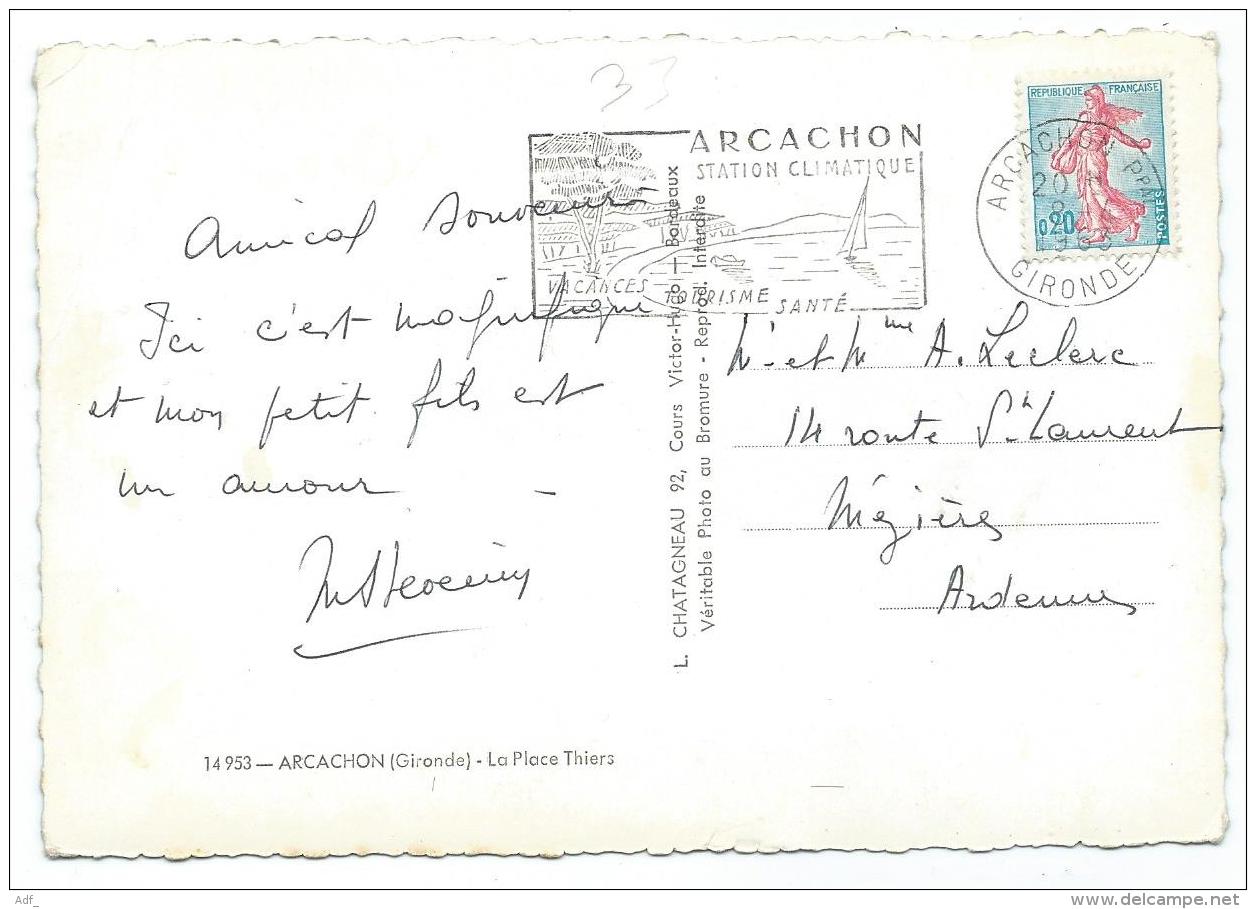 33
ARCACHON
STATION CLIMATIQUE
VACANCES TOURISME SANTÉ
REPUBLIQUE FRANÇAISE
0,20
POSTES
ARCACHON PPAL
20 H
8
1963
GIRONDE
Amical souvenir
Ici c'est magnifique
et mon petit fils est
un amour —
Mr et Mme A. Leclerc
14 route St Laurent
Mézières
Ardennes
L. CHATAGNEAU 92, Cours Victor-Hugo — Bordeaux
Véritable Photo au Bromure - Reprod. Interdite
14 953 — ARCACHON (Gironde) - La Place Thiers
Adf_
delcampe.net